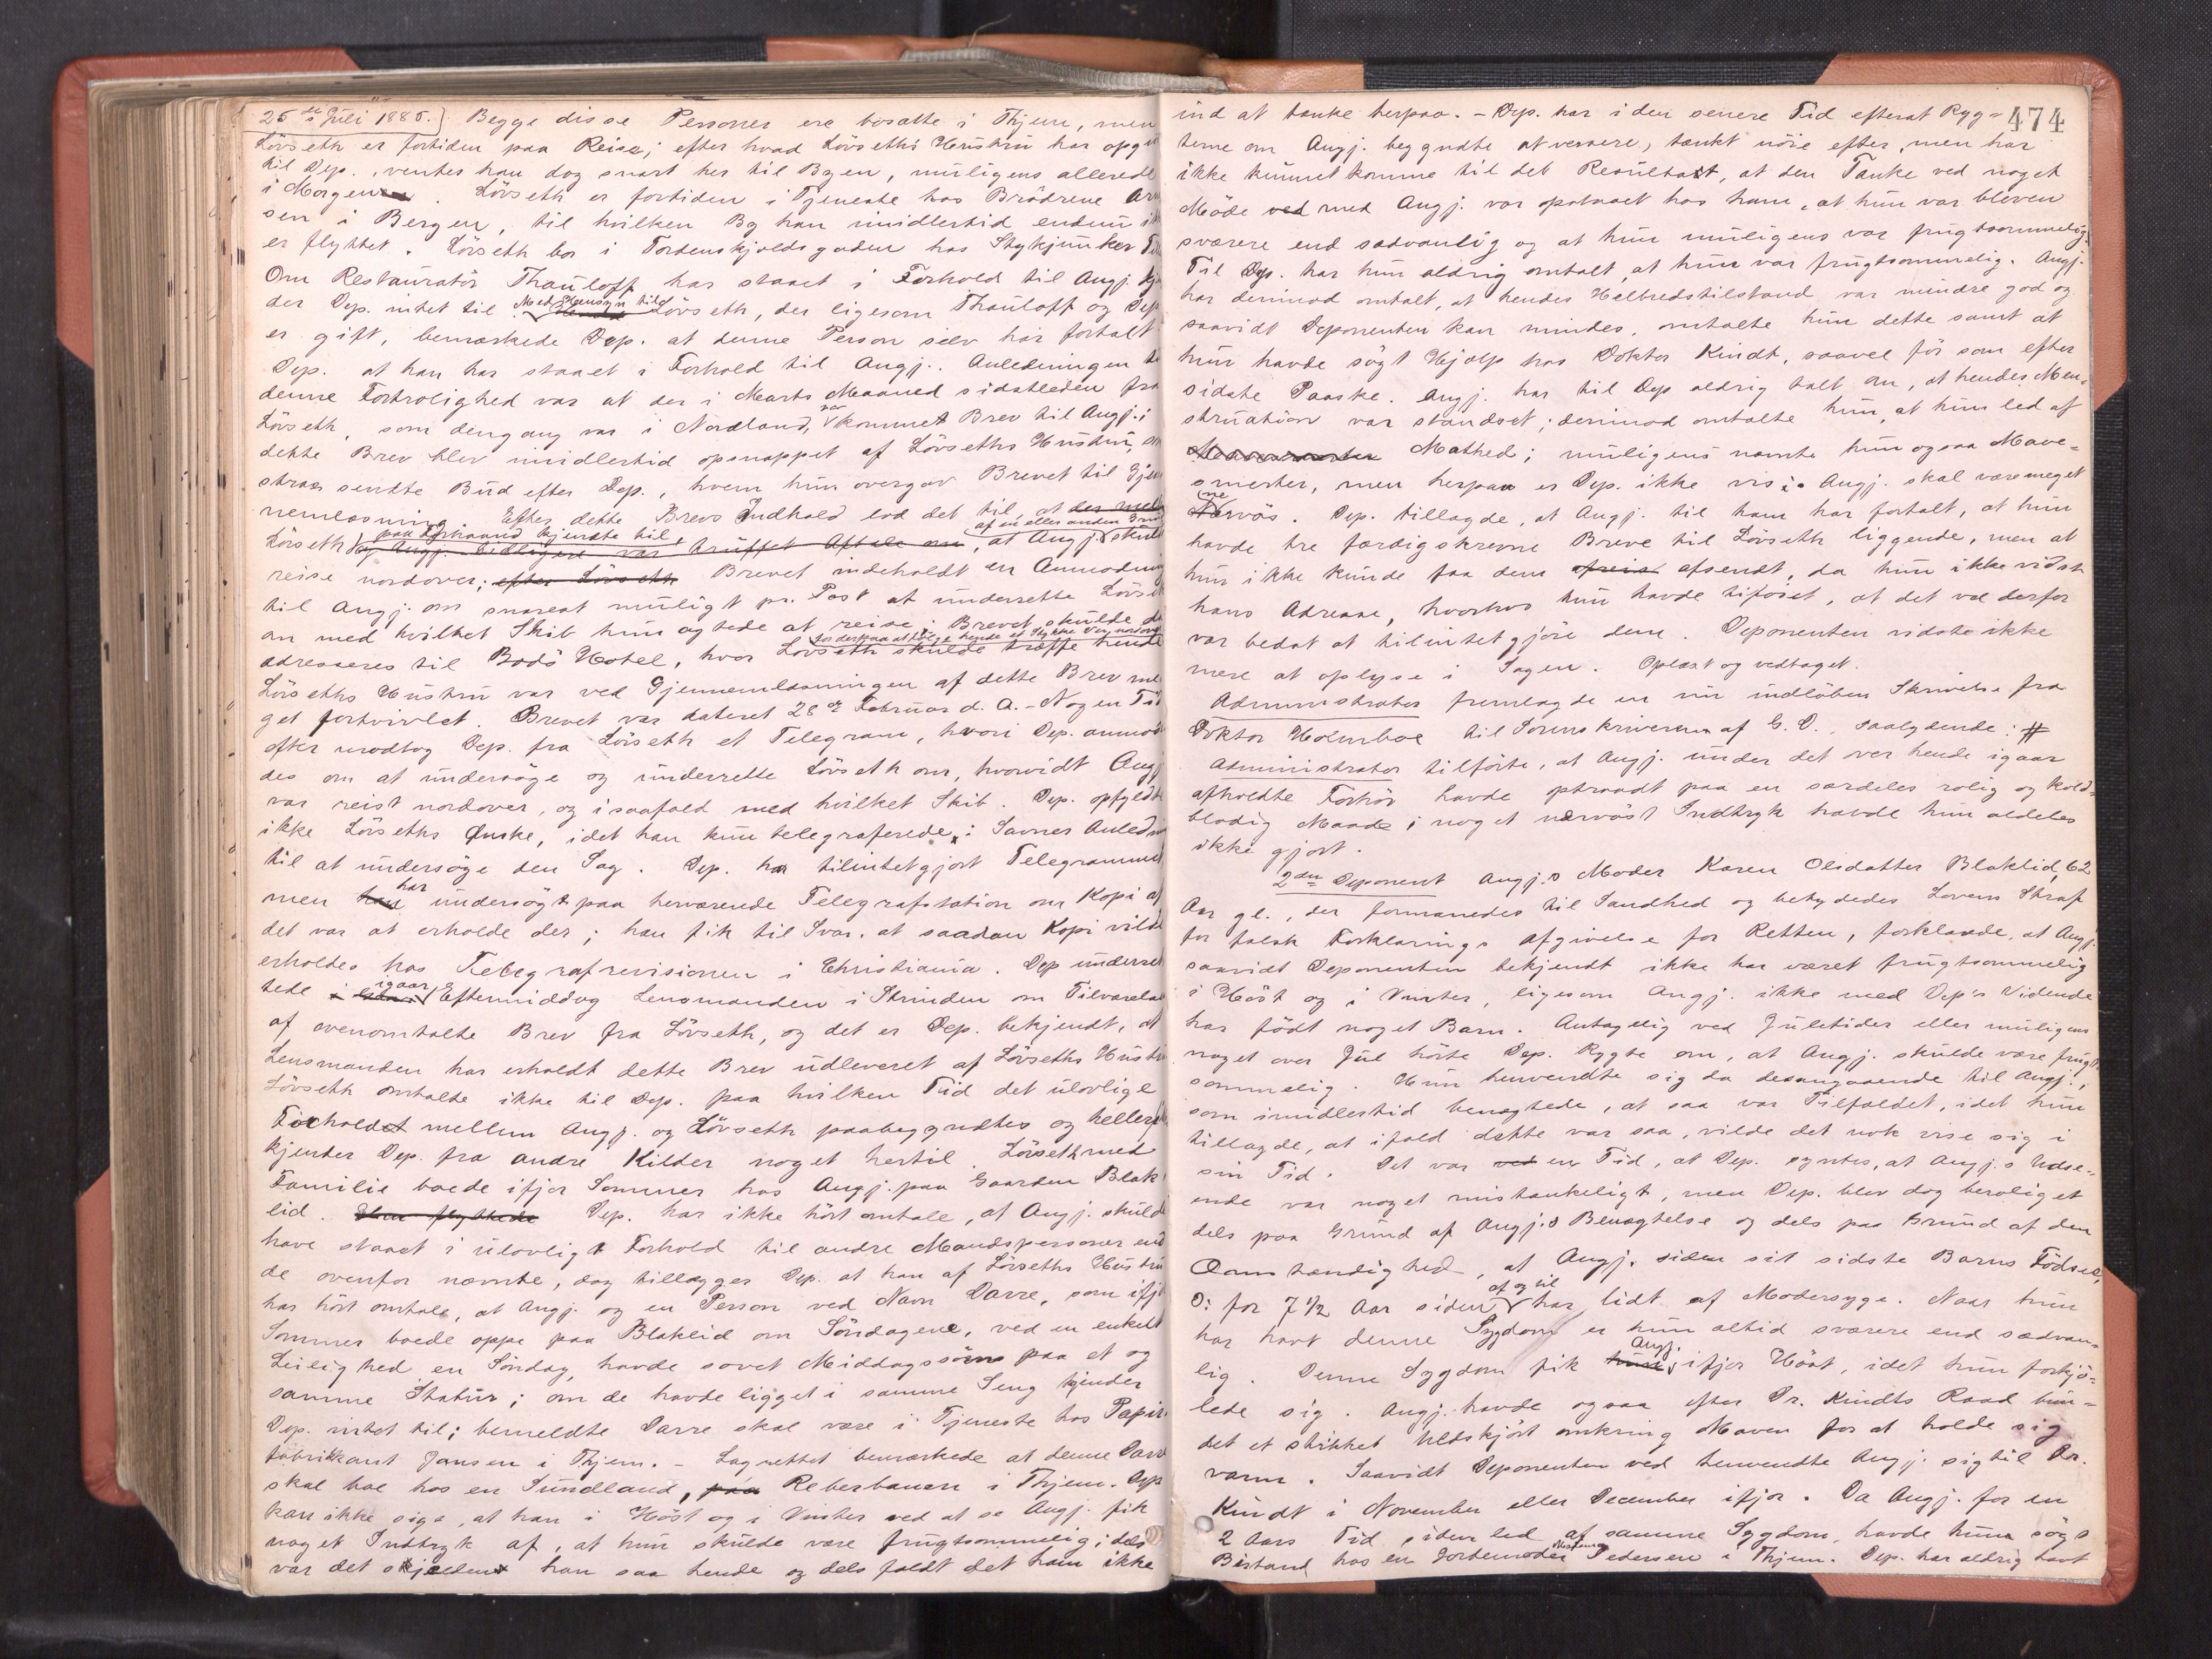 25de Juli 1885.) Begge disse Personer ere bosatte i Thjem, men
Lövseth er fortiden paa Reise; efter hvad Lövseths Hustru har opgit
til Dep., ventes han dog snart her til Byen, muligens allerede
i Morgen. Lövseth er fortiden i Tjeneste hos Brödrene
sen i Bergen, til hvilken By han imidlertid endnu ik
er flyttet. Lövseth bor i Tordenskjoldsgaden hos Stykjunker
Om Restauratör Thauloff har staaet i Forhold til Angj. kj
der Dep. intet til. Med Hensyn til Lövseth, der ligesom Thauloff og Dep
er gift, bemærkede Dep. at denne Person selv har fortalt
Dep. at han har staaet i Forhold til Angj. Anledningen
denne Fortrolighed var at der i Marts Maaned sidstleden fra
Lövseth, som dengang var i Nordland, var kommet Brev til Angj.;
dette Brev blev imidlertid opsnappet af Lövseths Hustru, so
strax sendte Bud efter Dep., hvem hun overgav Brevet til Gjen
nemlæsning. Efter dette Brevs Indhold lod det til, at der mel
Lövseth paa Forhaand kjendte til, og Angj. tidligere var truffet Aftale om, at Angj. af en eller anden Gru skul
reise nordover; efter Lövseth Brevet indeholdt en Anmodning
til Angj. om snarest muligt pr. Post at underrette Lövset
om med hvilket Skib hun agtede at reise; Brevet skulde
adresseres til Bodö Hotel, hvor Lövseth skulde træffe hende for derpaa at fölge hende et Stykke Vej nordover
Lövseths Hustru var ved Gjennemlæsningen af dette Brev me
get fortvivlet. Brevet var dateret 28de Februar d. A. - Nogen Tid
efter modtog Dep. fra Lövseth et Telegram, hvori Dep. anmod
des om at undersöge og underrette Lövseth om, hvorvidt Angj
var reist nordover, og i saafald med hvilket Skib. Dep. opfyldte
ikke Lövseths Önske, idet han kun telegraferede: Savner Anledn
til at undersöge den Sag. Dep. har tilintetgjort Telegrammet
men har undersögt paa herværende Telegrafstation om Kopi af
det var at erholde der; han fik til Svar, at saadan Kopi vilde
erholdes hos Telegrafrevisionen i Christiania. Dep underret
tede igaar Eftermiddag Lensmanden i Strinden om Tilværelsen
af ovenomtalte Brev fra Lövseth, og det er Dep. bekjendt, at
Lensmanden har erholdt dette Brev udleveret af Lövseths Hustru
Lövseth omtalte ikke til Dep. paa hvilken Tid det ulovlige
Forholdet mellem Angj. og Lövseth paabegyndtes og heller
kjender Dep. fra andre Kilder noget hertil. Lövseth med
Familie boede ifjor Sommer hos Angj. paa Gaarden Blak
lid. Han flyttede Dep. har ikke hört omtale, at Angj. skuld
have staaet i ulovligt Forhold til andre Mandspersoner end
de ovenfor nævnte, dog tillægger Dep. at han af Lövseths Hustru
har hört omtale, at Angj. og en Person ved Navn Darre, som ifjo
Sommer boede oppe paa Blaklid om Söndagene, ved en enkelt
Leilighed en Söndag, havde sovet Middagssövn paa et og
samme Stabur; om de havde ligget i samme Seng kjender
Dep. intet til; bemeldte Darre skal være i Tjeneste hos Papir
fabrikant Jansen i Thjem. - Lagrettet bemærkede at denne Darre
skal boe hos en Sundland, paa Reberbanen i Thjem. Dep
kan ikke sige, at han i Höst og i Vinter ved at se Angj. fik
noget Indtryk af, at hun skulde være frugtsommelig; dels
var det skjeldent han saa hende og dels faldt det ham ikke
474
ind at tænke herpaa. - Dep. har i den senere Tid efterat Ryg-
terne om Angj. begyndte at versere, tænkt nöie efter, men har
ikke kunnet komme til det Resultat, at den Tanke ved noget
Möde ved med Angj. var opstaaet hos ham, at hun var bleven
sværere end sædvanlig og at hun muligens var frugtsommelig.
Til Dep. har hun aldrig omtalt, at hun var frugtsommelig. Angj.
har derimod omtalt, at hendes Helbredstilstand var mindre god og
saavidt Deponenten kan mindes, omtalte hun dette samt at
hun havde sögt Hjælp hos Doktor Kindt, saavel för som efter
sidste Paaske. Angj. har til Dep aldrig talt om, at hendes Men-
struation var standset; derimod omtalte hun, at hun led af
Mathed; muligens nævnte hun ogsaa Mave-
smerter, men herpaa er Dep. ikke vis. Angj. skal være meget
nervös. Dep. tillagde, at Angj. til ham har fortalt, at hun
havde tre færdigskrevne Breve til Lövseth liggende, men at
hun ikke kunde faa dem afsendt, da hun ikke vidste
hans Adresse, hvorhos hun havde tiföiet, at det vel derfor
var bedst at tilintetgjöre dem. Deponenten vidste ikke
mere at oplyse i Sagen. Oplæst og vedtaget.
Administrator fremlagde en nu indlöben Skrivelse fra
Doktor Holmboe til Sorenskriveren af G. D. saalydende: #
Administrator tilförte, at Angj. under det over hende igaar
afholdte Forhör havde optraadt paa en særdeles rolig og kold-
blodig Maade; noget nervöst Indtryk havde hun aldeles
ikke gjort.
2den Deponent Angj.s Moder Karen Olsdatter Blaklid, 62
Aar gl., der formanedes til Sandhed og betydedes Lovens Straf
for falsk Forklarings Afgivelse for Retten, forklarede, at Angj.
saavidt Deponenten bekjendt ikke har været frugtsommelig
i Höst og i Vinter, ligesom Angj. ikke med Dep's Vidende
har födt noget Barn. Antagelig ved Juletider eller muligens
noget over Jul hörte Dep. Rygte om, at Angj. skulde være frugt
sommelig. Hun henvendte sig da desangaaende til Angj.,
som imidlertid benægtede, at saa var Tilfældet, idet hun
tillagde, at ifald dette var saa, vilde det nok vise sig i
sin Tid. Det var ved en Tid, at Dep. syntes, at Angj.s Udse-
ende var noget mistænkeligt, men Dep. blev dog beroliget
dels paa Grund af Angj.s Benægtelse og dels paa Grund af den
Omstændighed, at Angj. siden sit sidste Barns Födsel,
ɔ: for 7 1/2 Aar siden af og til har lidt af Modersyge. Naar hun
har havt denne Sygdom er hun altid sværere end sædvan-
lig. Denne Sygdom fik Angj. ifjor Höst, idet hun forkjö-
lede sig. Angj. havde ogsaa efter Dr. Kindts Raad bun-
det et strikket Uldskjört omkring Maven for at holde sig
varm. Saavidt Deponenten ved henvendte Angj. sig til Dr.
Kindt i November eller December ifjor. Da Angj. for en
2 Aars Tid siden led af samme Sygdom, havde hun sögt
Bistand hos en Jordemoder Pedersen i Thjem. Dep. har aldrig havt